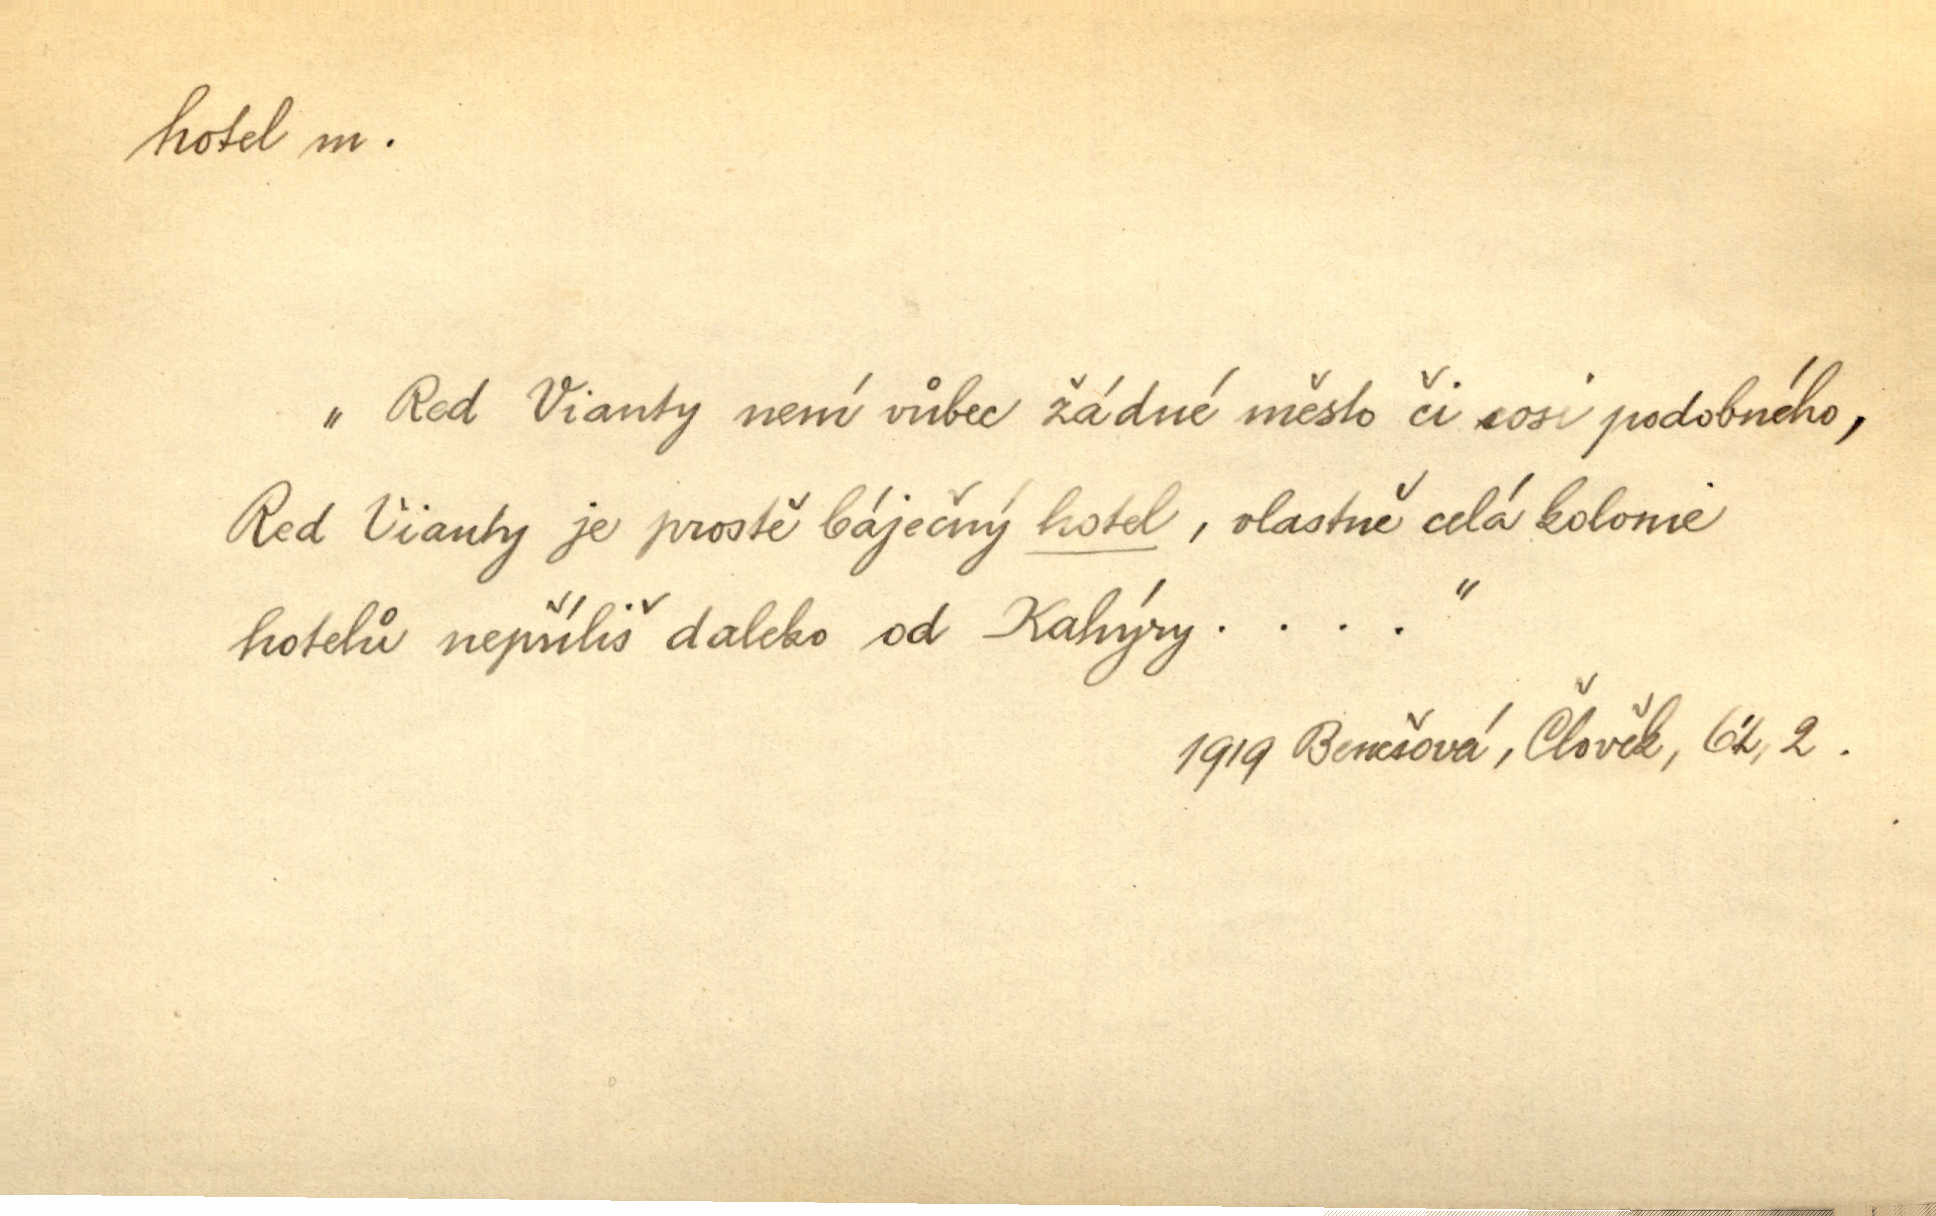 hotel m.
„ Red Vianty není vůbec žádné město či cosi podobného,
Red Vianty je prostě báječný hotel, vlastně celá kolonie
hotelů nepříliš daleko od Kahýry . . . . "
1919 Benešová, Člověk, 2.